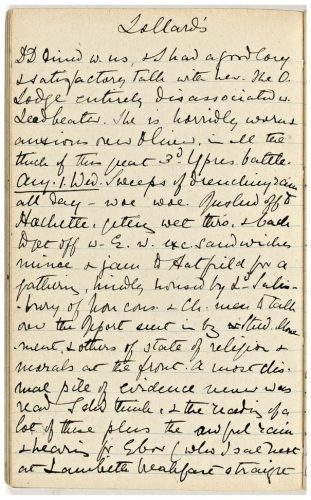 Lollard's
DD dined w. us, & I had a good long
& satisfactory talk with her. The O.
Lodge entirely disassociated w.
Leadbeater. She is horridly worn &
anxious over Oliver, in all the
thick of this great 3rd Ypres battle.
Aug. 1. Wed. Sweeps of drenching rain
all day – woe woe. Pushed off to
Hachette, getting wet thro, & back
to get off w. E. w. exc sandwiches
mince & jam to Hatfield for a
gathering, kindly housed by Ld Salis-
bury of non cons & Ch. men to talk
over the report sent in by Stud. Move-
ment & others of state of religion &
morals at the front. A most dis-
mal pile of evidence never was
read I shd think, & the reading of a
lot of these plus the awful rain
& hearing fr Ebor (who I sat next
at Lambeth breakfast straight